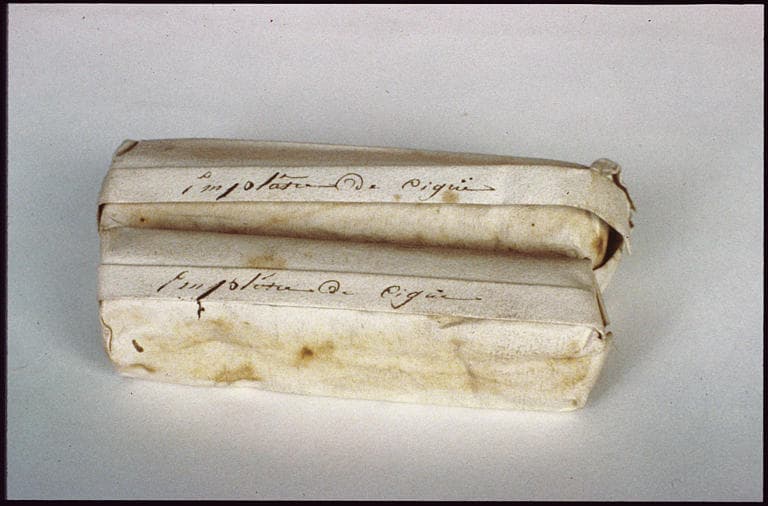 Emplâtre de ciguë
Emplâtre de ciguë